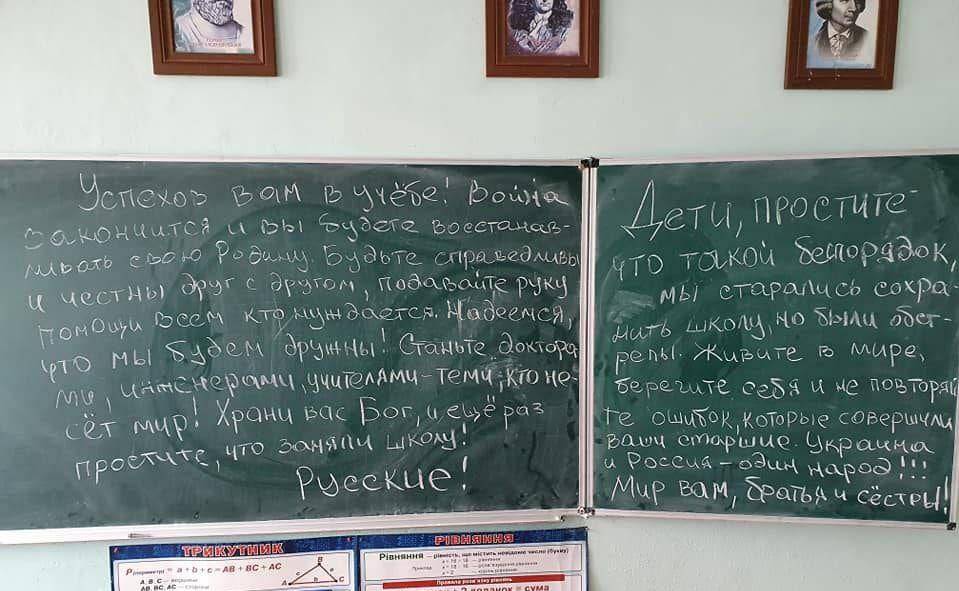 Успехов вам в учёбе! Война
закончится и вы будете восстанав-
ливать свою Родину. Будьте справедливы
и честны друг с другом, подавайте руку
помощи всем кто нуждается. Надеемся,
что мы будем дружны! Станьте доктора-
ми, инженерами, учителями-теми, кто не-
сёт мир! Храни вас Бог, и ещё раз
простите, что заняли школу!
Русские!
Дети, простите
что такой беспорядок,
мы старались сохра-
нить школу, но были обст-
релы. Живите в мире,
берегите себя и не повторяй
те ошибок, которые совершили
ваши старшие. Украина
и Россия - один народ!!!
Мир вам, братья и сёстры!
ТРИКУТНИК
P = a + b + c = AB + BC + AC
A, B, C —
AB, BC, AC —
B
a
c
b
A
C
РІВНЯННЯ
Рівняння — рівність, що містить невідоме число (букву)
Правила розв'язку рівнянь
доданок = сума